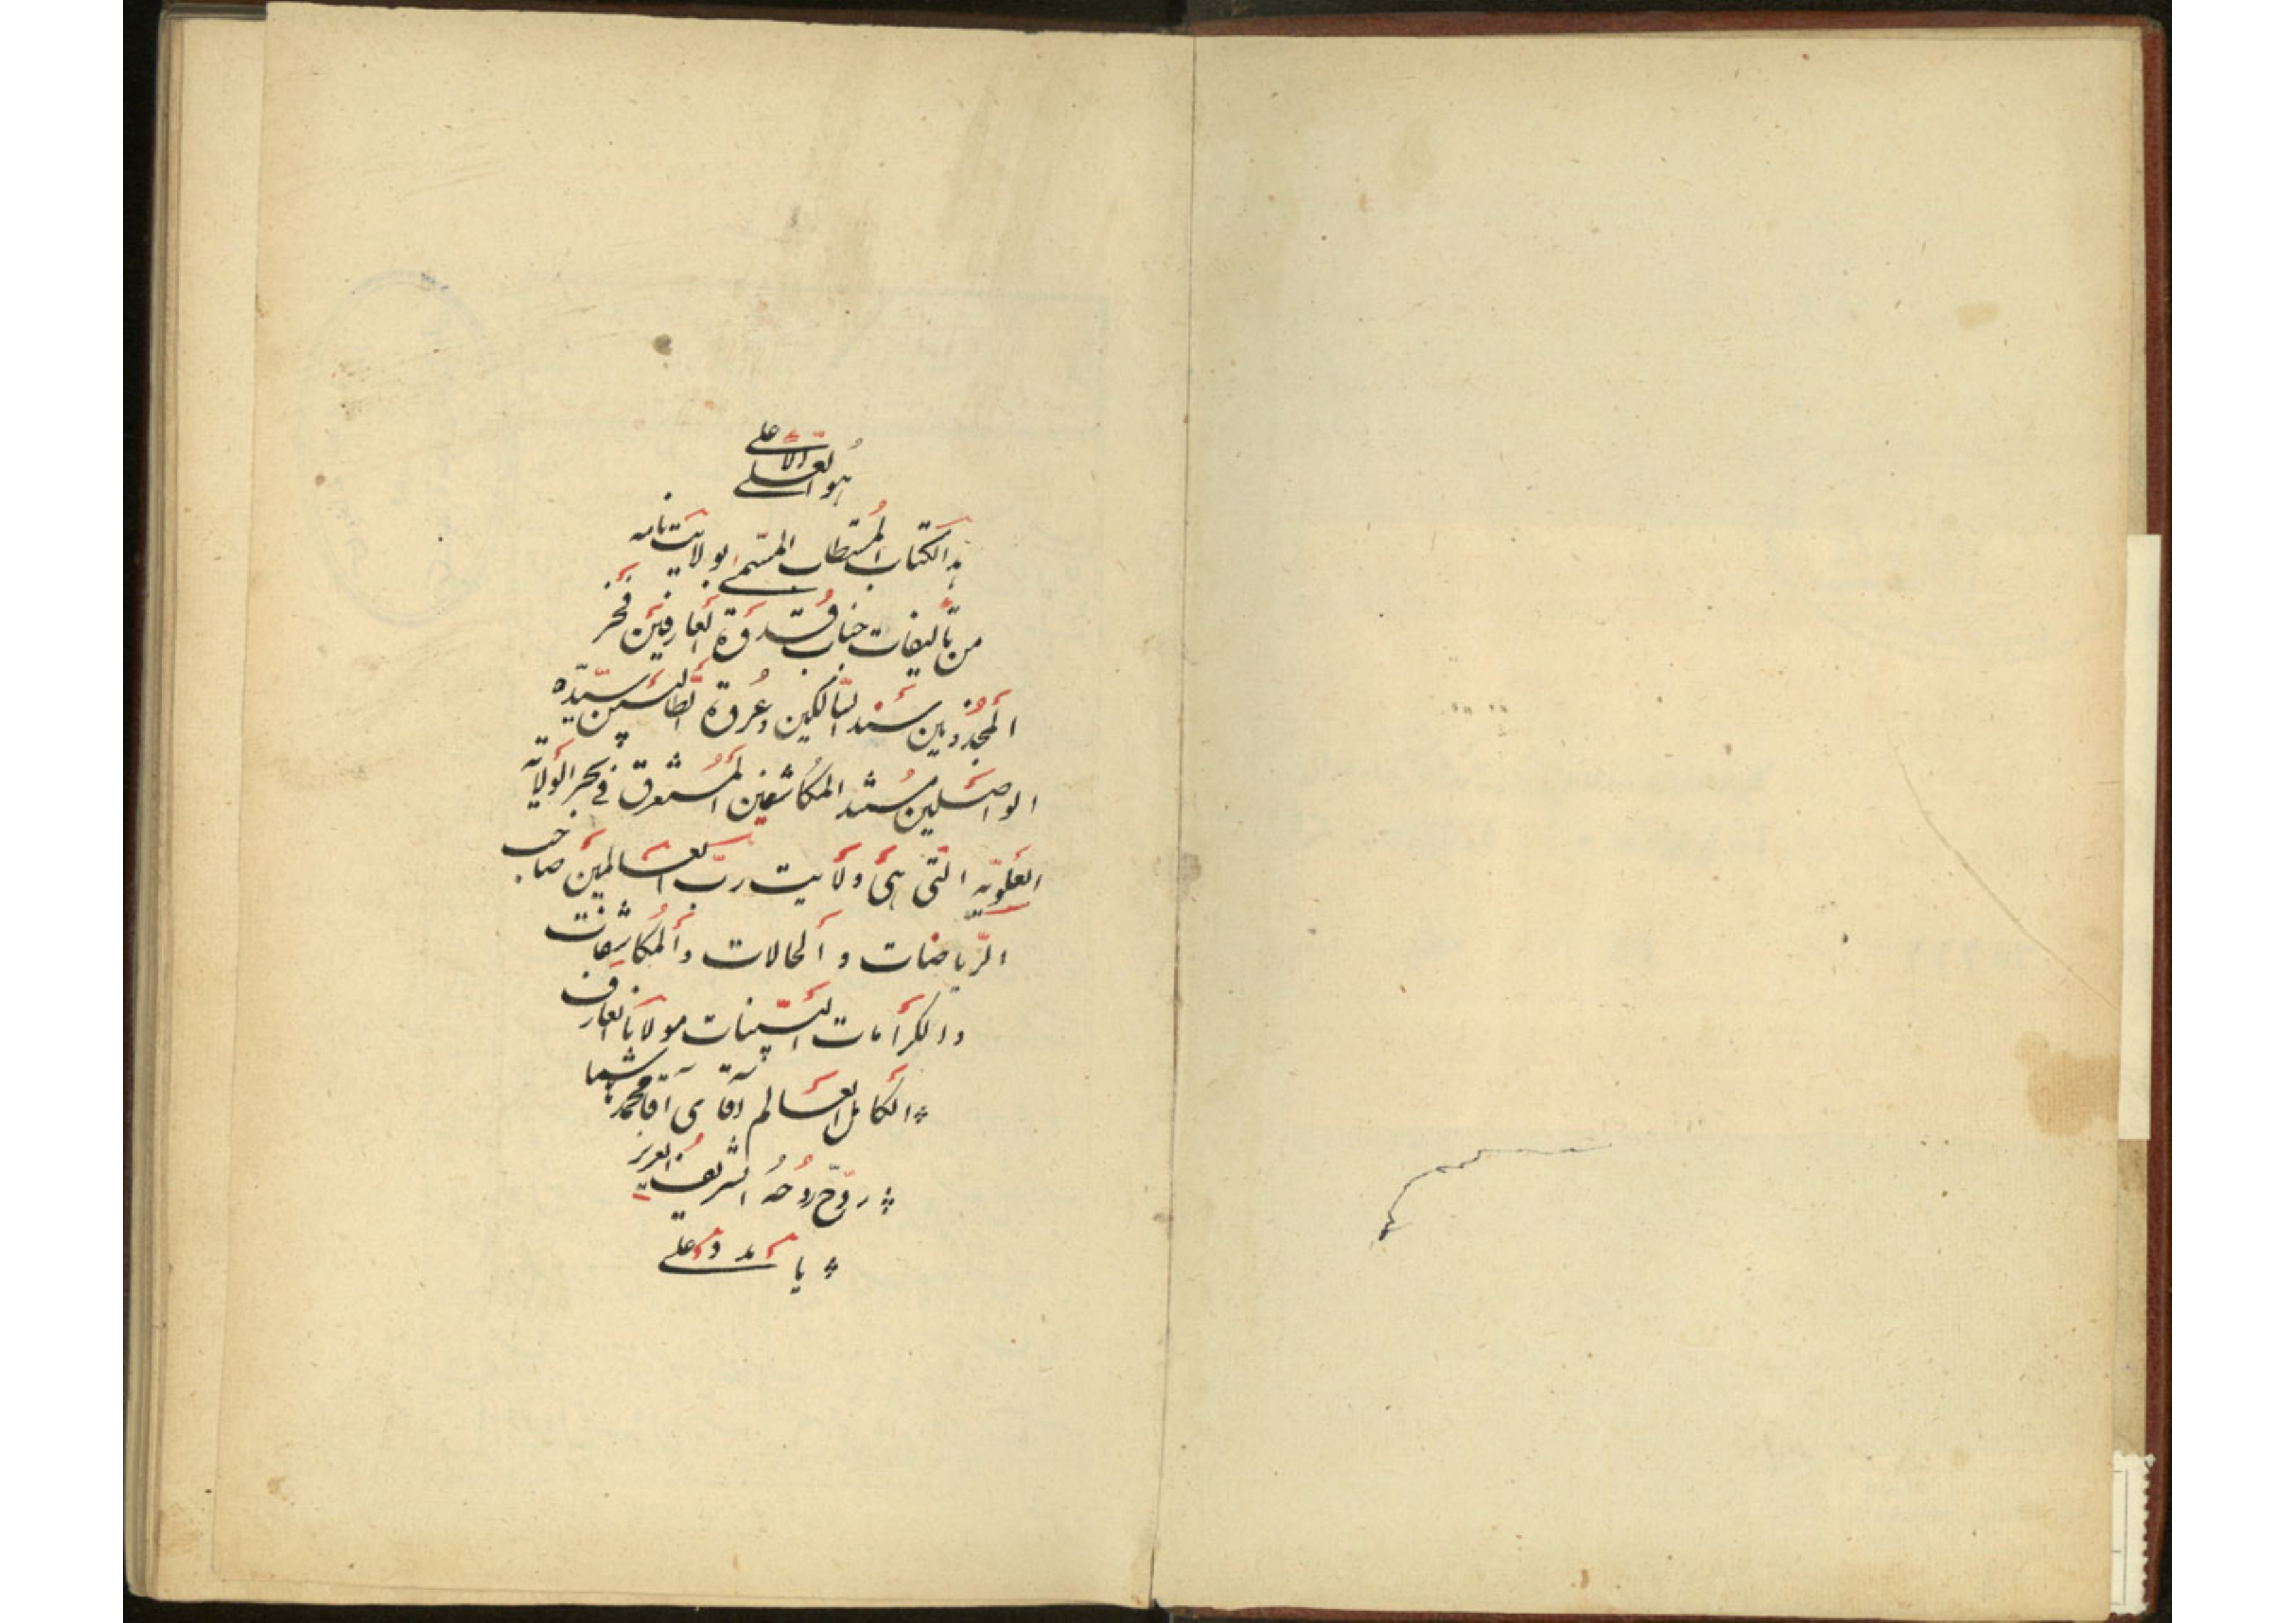 هو العلی الاعلی
هذا الکتاب المُستطاب المسّمیٰ بولایَت نامه
من تألیفات جناب قُدوَة العَارفینَ فخر
المَجذُوبین سَنَد السّالکین وعُروَة الطّالبین سیّد
الواصَلین مُسند المکاشفین المُستَغرق فی بحر الوَلایة
العَلَویّه التّی هیَ ولَایت ربّ العَالمینَ صاحب
الرّیاضات و الحَالات و المُکاشِفات
والکرَامات البَیّنات مولانا العَارف
الکامل العَالم آقای آقا محمّد هاشم
روّح رُوحُه الشریفُ العزیز
یا علی مدد